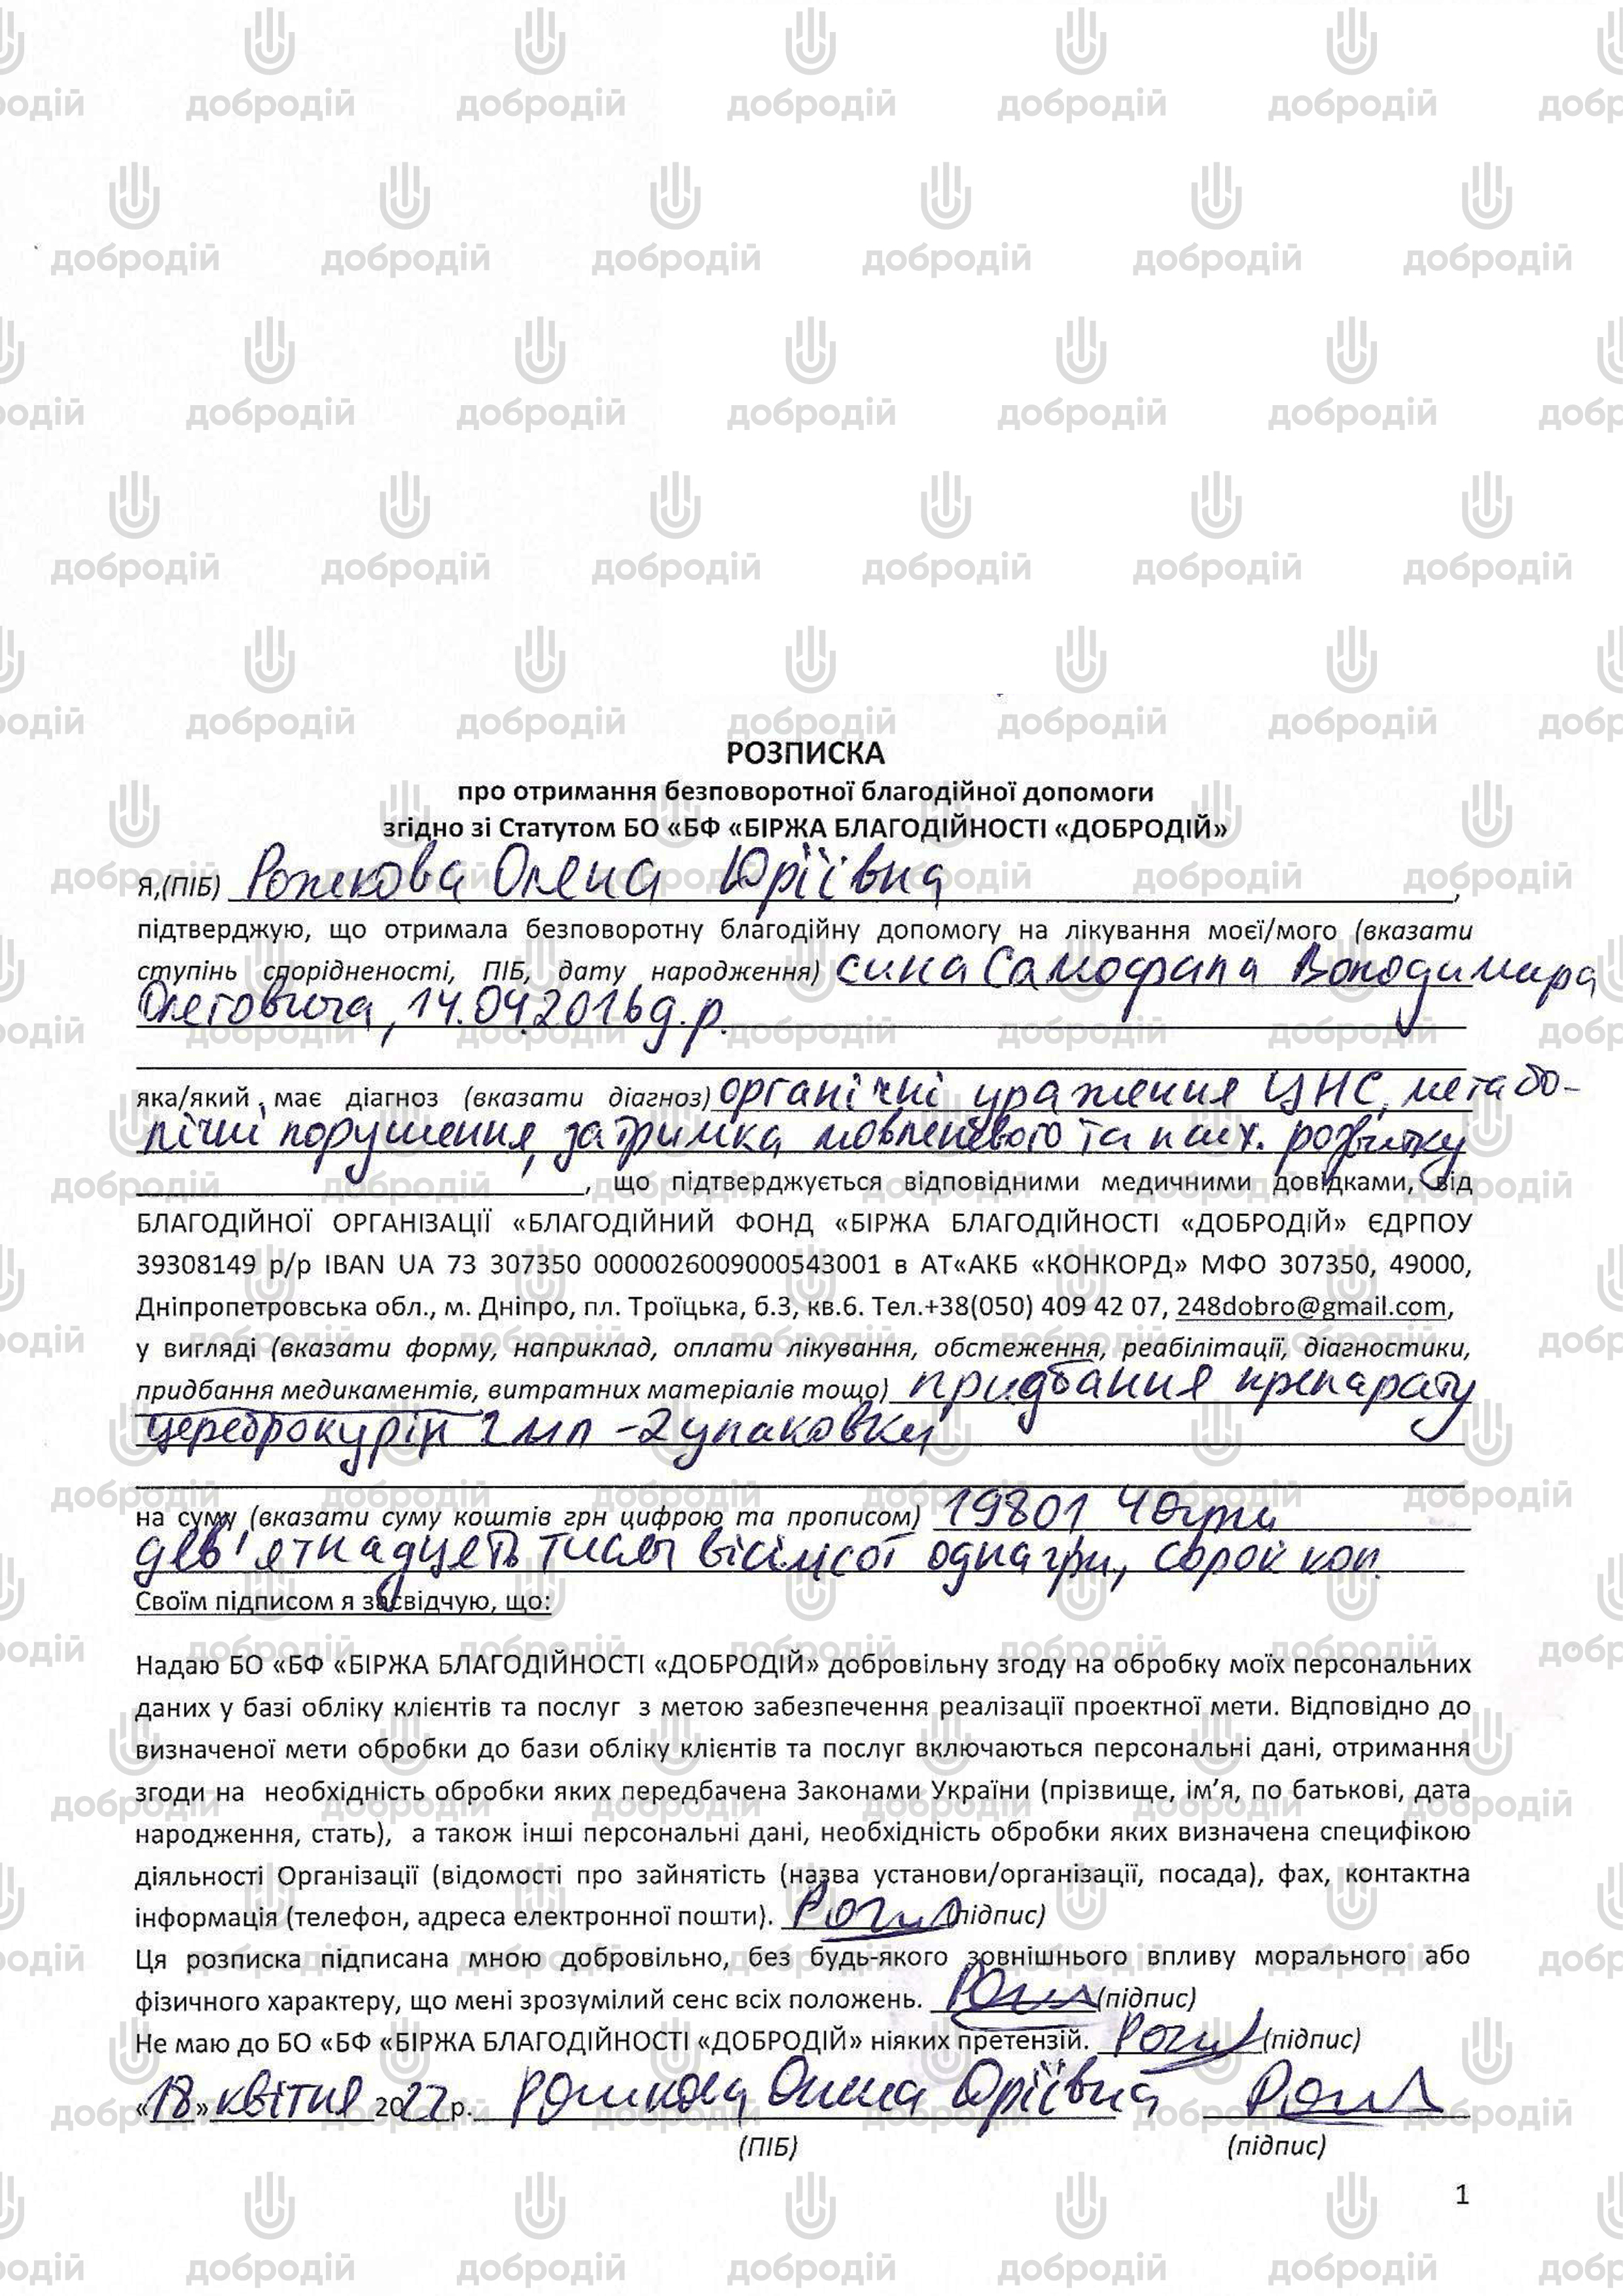 РОЗПИСКА
про отримання безповоротної благодійної допомоги
згідно зі Статутом БО «БФ «БІРЖА БЛАГОДІЙНОСТІ «ДОБРОДІЙ»
Я,(ПІБ) Рожкова Олена Юріївна,
підтверджую, що отримала безповоротну благодійну допомогу на лікування моєї/мого (вказати
ступінь спорідненості, ПІБ, дату народження) сина Самофала Володимира
Олеговича, 14.04.2016 д.р.
яка/який має діагноз (вказати діагноз) органічні ураження ЦНС, метабо-
лічні порушення, затримка мовленевого та псих. розвитку
, що підтверджується відповідними медичними довідками, від
БЛАГОДІЙНОЇ ОРГАНІЗАЦІЇ «БЛАГОДІЙНИЙ ФОНД «БІРЖА БЛАГОДІЙНОСТІ «ДОБРОДІЙ» ЄДРПОУ
39308149 р/р IBAN UA 73 307350 0000026009000543001 в АТ«АКБ «КОНКОРД» МФО 307350, 49000,
Дніпропетровська обл., м. Дніпро, пл. Троїцька, б.3, кв.6. Тел.+38(050) 409 42 07, 248dobro@gmail.com,
у вигляді (вказати форму, наприклад, оплати лікування, обстеження, реабілітації, діагностики,
придбання медикаментів, витратних матеріалів тощо) придбання препарату
цереброкурін 2 мл - 2 упаковки
на суму (вказати суму коштів грн цифрою та прописом) 19801
дев'ятнадцять тисяч вісімсот одна грн, сорок коп.
Своїм підписом я засвідчую, що:
Надаю БО «БФ «БІРЖА БЛАГОДІЙНОСТІ «ДОБРОДІЙ» добровільну згоду на обробку моїх персональних
даних у базі обліку клієнтів та послуг з метою забезпечення реалізації проектної мети. Відповідно до
визначеної мети обробки до бази обліку клієнтів та послуг включаються персональні дані, отримання
згоди на необхідність обробки яких передбачена Законами України (прізвище, ім'я, по батькові, дата
народження, стать), а також інші персональні дані, необхідність обробки яких визначена специфікою
діяльності Організації (відомості про зайнятість (назва установи/організації, посада), фах, контактна
інформація (телефон, адреса електронної пошти). (підпис)
Ця розписка підписана мною добровільно, без будь-якого зовнішнього впливу морального або
фізичного характеру, що мені зрозумілий сенс всіх положень. (підпис)
Не маю до БО «БФ «БІРЖА БЛАГОДІЙНОСТІ «ДОБРОДІЙ» ніяких претензій. (підпис)
«18» квітня 2022 р. Рожкова Олена Юріївна
(ПІБ) (підпис)
1